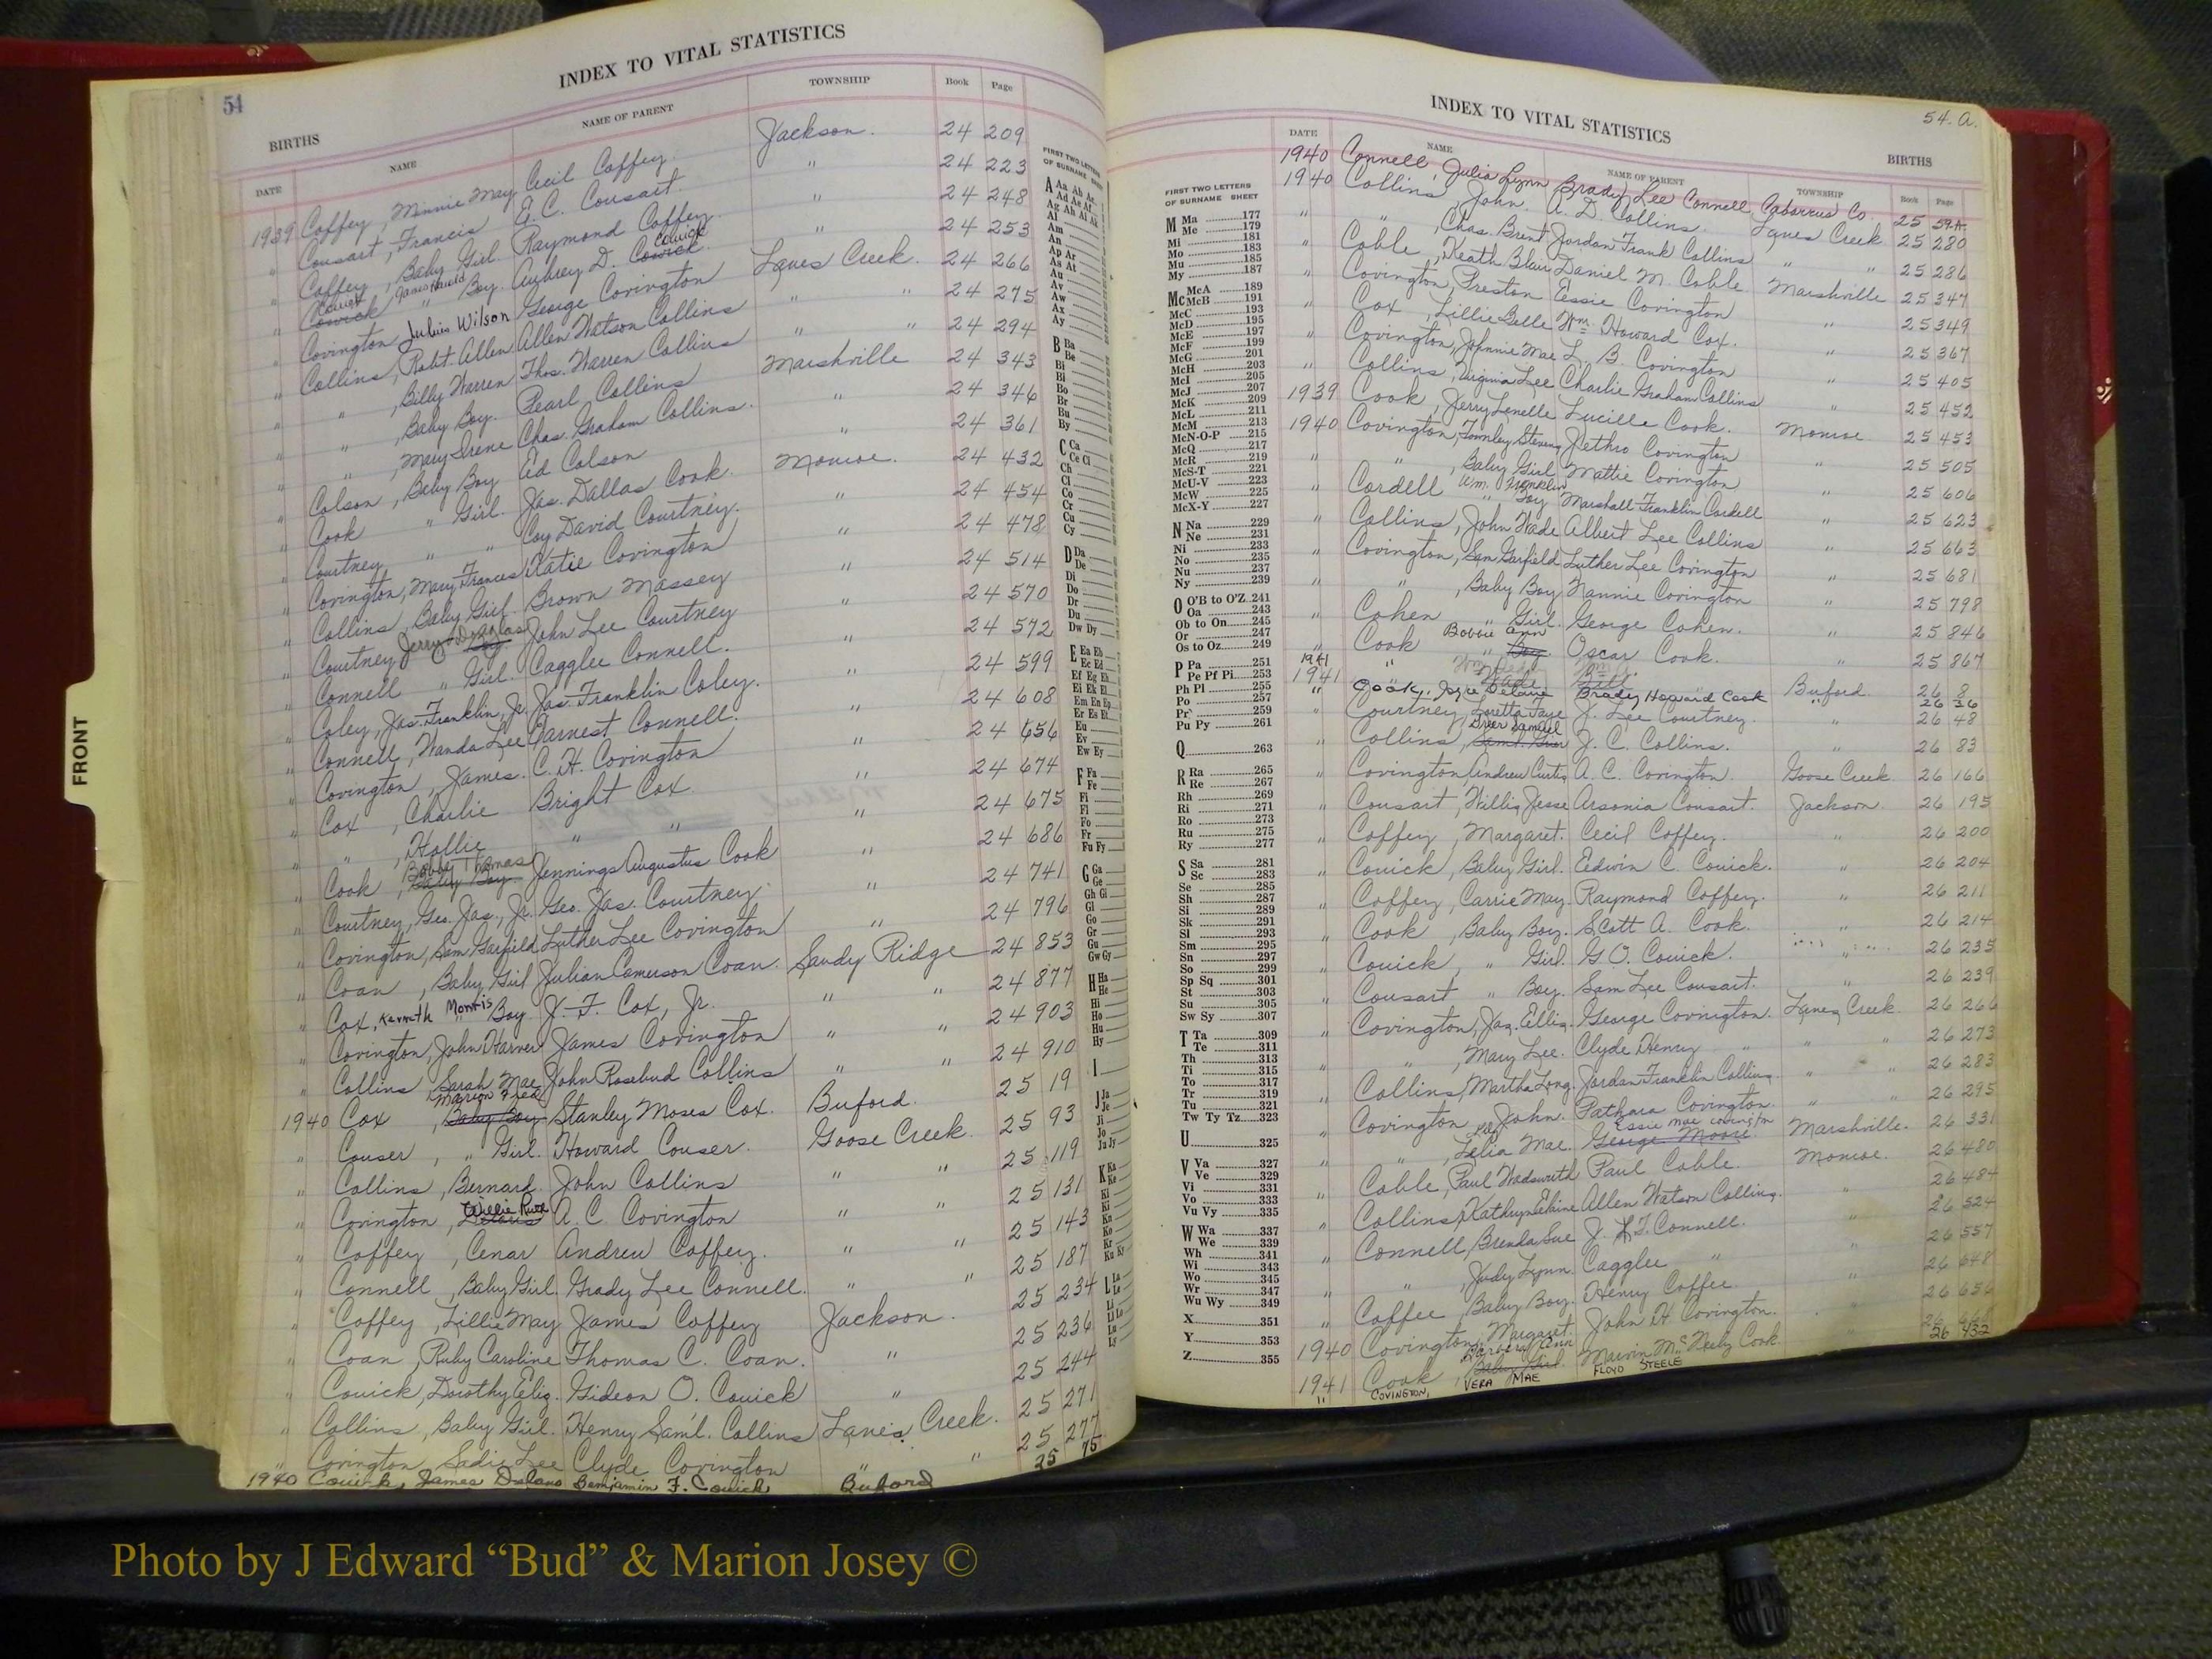 54
INDEX TO VITAL STATISTICS
BIRTHS
DATE NAME NAME OF PARENT TOWNSHIP Book Page
1939 Coffey, Minnie May Cecil Coffey. Jackson. 24 209
" Cousart, Francis E.C. Cousart. " 24 223
" Coffey, Baby Girl. Raymond Coffey. " 24 248
" Couick James Harold Boy. Aubrey D. Couick " 24 253
" Covington Julius Wilson George Covington Lanes Creek. 24 266
" Collins, Robt. Allen Allen Watson Collins " " 24 275
" " , Billy Warren Thos. Warren Collins " " 24 294
" " , Baby Boy. Pearl Collins Marshville 24 343
" " , Mary Irene Chas. Graham Collins. " 24 346
" Colson, Baby Boy Ed Colson " 24 361
" Cook " Girl. Jas. Dallas Cook. Monroe. 24 432
" Courtney " " Coy David Courtney. " 24 454
" Covington, Mary Frances Katie Covington " 24 478
" Collins, Baby Girl. Brown Massey " 24 514
" Courtney Jerry Douglas John Lee Courtney " 24 570
" Connell " Girl. Cagglee Connell. " 24 572
" Coley, Jas. Franklin, Jr. Jas. Franklin Coley. " 24 599
" Connell, Wanda Lee Earnest Connell. " 24 608
" Covington, James. C. H. Covington " 24 656
" Cox, Charlie Bright Cox " 24 674
" " , Hollie " " " 24 675
" Cook, Bobby Thomas Baby Boy. Jennings Augustus Cook " 24 686
" Courtney, Geo. Jas., Jr. Geo. Jas. Courtney " 24 741
" Covington, Sam Garfield Luther Lee Covington " 24 796
" Coan, Baby Girl Julian Camerson Coan. Sandy Ridge 24 853
" Cox, Kenneth Morris Boy. J. F. Cox, Jr. " " 24 877
" Covington, John Harver James Covington " " 24 903
" Collins Sarah Mae John Rosebud Collins " " 24 910
1940 Cox Marion Fred , Baby Boy Stanley Moses Cox. Buford. 25 19
" Couser, " Girl. Howard Couser. Goose Creek. 25 93
" Collins, Bernard. John Collins " " 25 119
" Covington, Willie Ruth A. C. Covington " " 25 131
" Coffey, Cenar Andrew Coffey. " " 25 143
" Connell, Baby Girl. Grady Lee Connell. " " 25 187
" Coffey, Lillie May James Coffey Jackson. 25 234
" Coan, Ruby Caroline Thomas C. Coan. " 25 236
" Couick, Dorothy Eliz. Gideon O. Couick " 25 244
" Collins, Baby Girl. Henry Sam'l. Collins Lanes Creek. 25 271
" Covington Sadie Lee Clyde Covington " " 25 277
1940 Couick, James Delano Benjamin F. Couick Buford 25 75
FRONT
FIRST TWO LETTERS
OF SURNAME SHEET
A Aa Ab Ac
Ad Ae Af
Ag Ah Ai Ak
Al
Am
An
Ap Ar
As At
Au
Av
Aw
Ax
Ay
B Ba
Be
Bi
Bl
Bo
Br
Bu
By
C Ca
Ce Ci
Ch
Cl
Co
Cr
Cu
Cy
D Da
De
Di
Do
Dr
Du
Dw Dy
E Ea Eb
Ec Ed
Ef Eg Eh
Ei Ek El
Em En Ep
Er Es Et
Eu
Ev
Ew Ey
F Fa
Fe
Fi
Fl
Fo
Fr
Fu Fy
G Ga
Ge
Gh Gi
Gl
Go
Gr
Gu
Gw Gy
H Ha
He
Hi
Ho
Hu
Hy
I
J Ja
Je
Ji
Jo
Ju Jy
K Ka
Ke
Ki
Kl
Kn
Ko
Kr
Ku Ky
L La
Le
Li
Ll Lo
Lu
Ly
54. A.
INDEX TO VITAL STATISTICS
BIRTHS
DATE NAME NAME OF PARENT TOWNSHIP Book Page
1940 Connell, Julia Lynn Brady Lee Connell Cabarrus Co. 25 59-A
1940 Collins, John. A. D. Collins. Lanes Creek 25 280
" " , Chas. Brent Jordan Frank Collins " " 25 286
" Coble, Keath Blair Daniel M. Coble Marshville 25 347
" Covington, Preston Essie Covington " 25 349
" Cox, Lillie Belle Wm. Howard Cox. " 25 367
" Covington, Johnnie Mae L. B. Covington " 25 405
" Collins, Virginia Lee Charlie Graham Collins " 25 452
1939 Cook, Jerry Lenelle Lucille Cook. Monroe 25 453
1940 Covington, Townley Stevens Jethro Covington " 25 505
" " , Baby Girl Mattie Covington " 25 606
" Cordell Wm. Franklin " Boy Marshall Franklin Cordell " 25 623
" Collins, John Wade Albert Lee Collins " 25 663
" Covington, Sam Garfield Luther Lee Covington " 25 681
" " , Baby Boy Nannie Covington " 25 798
" Cohen " Girl. George Cohen. " 25 846
" Cook Bobbie Ann " Boy Oscar Cook. " 25 867
1941 " Wade Buford 26 8
" Cook, Joyce Delaine Brady Howard Cook " 26 26
" Courtney, Loretta Faye J. Lee Courtney. " 26 48
" Collins, Greer Samuel J. C. Collins. " 26 83
" Covington Andrew Curtis A. C. Covington. Goose Creek 26 166
" Cousart, Willis Jesse Arsonia Cousart. Jackson. 26 195
" Coffey, Margaret. Cecil Coffey. " 26 200
" Couick, Baby Girl. Eedwin C. Couick. " 26 204
" Coffey, Carrie May. Raymond Coffey. " 26 211
" Cook, Baby Boy. Scott A. Cook. " 26 214
" Couick, " Girl. G. O. Couick. " 26 235
" Cousart " Boy. Sam Lee Cousart. " 26 239
" Covington, Jas. Ellis. George Covington. Lanes Creek 26 266
" " , Mary Lee. Clyde Henry " " " 26 273
" Collins, Martha Long. Jordan Franklin Collins. " " 26 283
" Covington, John. Covington. " " 26 295
" " , Lelia Mae. Essie Mae Covington George Moore. Marshville. 26 331
" Coble, Paul Wadsworth Paul Coble. Monroe. 26 480
" Collins, Kathryn Elaine Allen Watson Collins. " 26 484
" Connell, Brenda Sue J. L. T. Connell. " 26 524
" " , Judy Lynn. Cagglee " " 26 557
" Coffee, Baby Boy. Henry Coffee. " 26 648
1940 Covington, Margaret. John H. Covington. " 26 656
1941 Cook, Barbara Ann Baby Girl. Marvin McNeely Cook. "
" COVINGTON, VERA MAE FLOYD STEELE 26 432
FIRST TWO LETTERS
OF SURNAME SHEET
M Ma 177
Me 179
Mi 181
Mo 183
Mu 185
My 187
Mc McA 189
McB 191
McC 193
McD 195
McE 197
McF 199
McG 201
McH 203
McI 205
McJ 207
McK 209
McL 211
McM 213
McN-O-P 215
McQ 217
McR 219
McS-T 221
McU-V 223
McW 225
McX-Y 227
N Na 229
Ne 231
Ni 233
No 235
Nu 237
Ny 239
O O'B to O'Z 241
Oa 243
Ob to On 245
Or 247
Os to Oz 249
P Pa 251
Pe Pf Pi 253
Ph Pl 255
Po 257
Pr 259
Pu Py 261
Q 263
R Ra 265
Re 267
Rh 269
Ri 271
Ro 273
Ru 275
Ry 277
S Sa 281
Sc 283
Se 285
Sh 287
Si 289
Sk 291
Sl 293
Sm 295
Sn 297
So 299
Sp Sq 301
St 303
Su 305
Sw Sy 307
T Ta 309
Te 311
Th 313
Ti 315
To 317
Tr 319
Tu 321
Tw Ty Tz 323
U 325
V Va 327
Ve 329
Vi 331
Vo 333
Vu Vy 335
W Wa 337
We 339
Wh 341
Wi 343
Wo 345
Wr 347
Wu Wy 349
X 351
Y 353
Z 355
Photo by J Edward “Bud” & Marion Josey ©